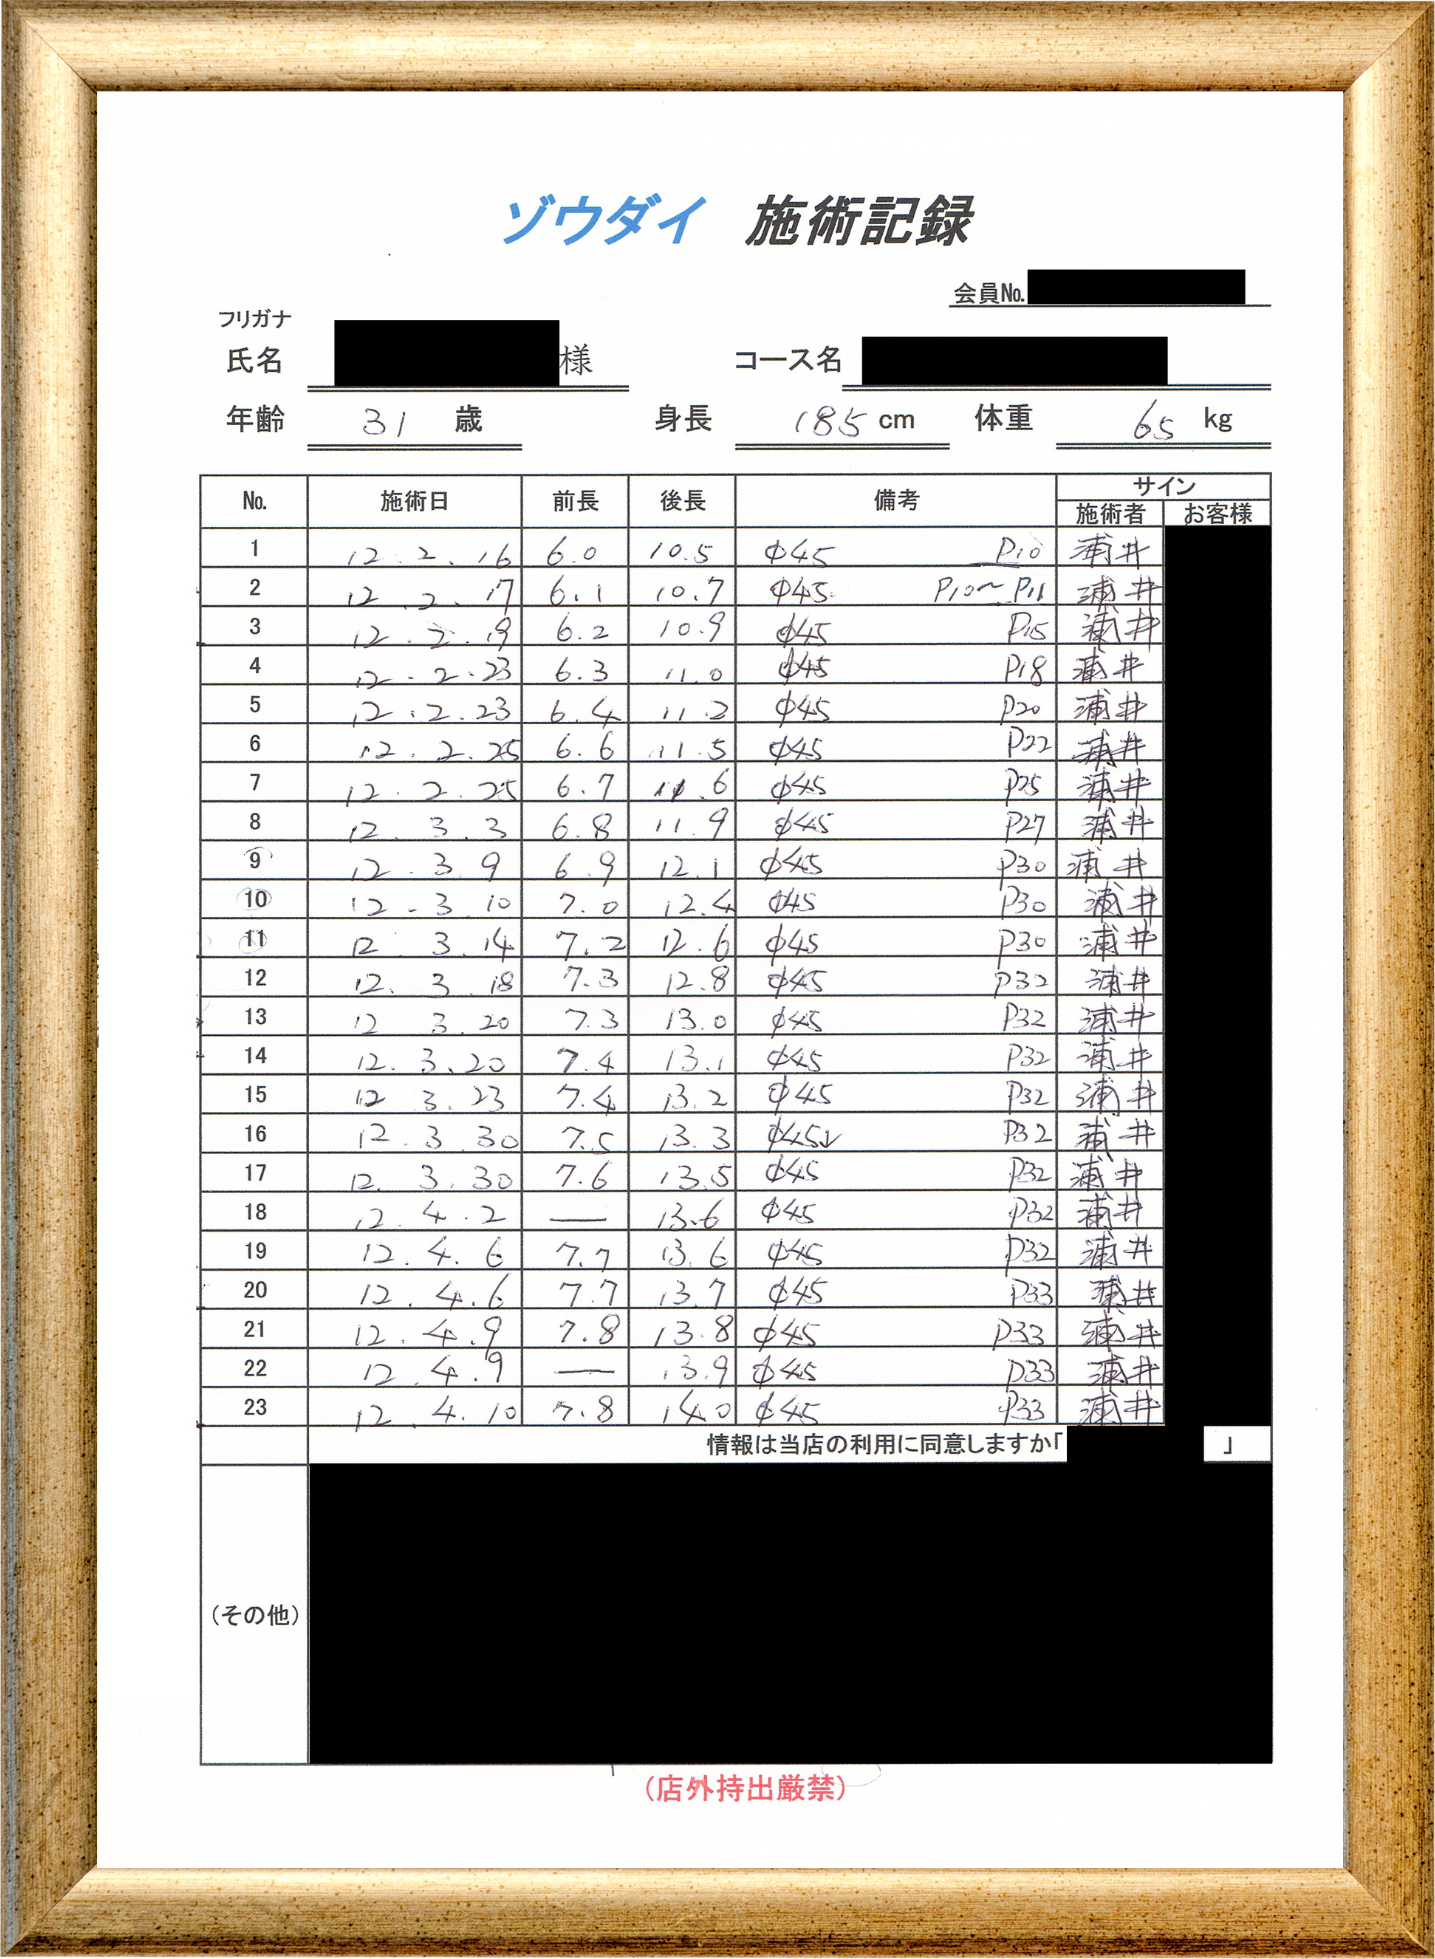 ゾウダイ 施術記録
会員No.
フリガナ
氏名 様 コース名
年齢 31 歳 身長 185 cm 体重 65 kg
No. 施術日 前長 後長 備考 サイン
施術者 お客様
1 12.2.16 6.0 10.5 φ45 P10 浦井
2 12.2.17 6.1 10.7 φ45 P10~P11 浦井
3 12.2.19 6.2 10.9 φ45 P15 浦井
4 12.2.23 6.3 11.0 φ45 P18 浦井
5 12.2.23 6.4 11.2 φ45 P20 浦井
6 12.2.25 6.6 11.5 φ45 P22 浦井
7 12.2.25 6.7 11.6 φ45 P25 浦井
8 12.3.3 6.8 11.9 φ45 P27 浦井
9 12.3.9 6.9 12.1 φ45 P30 浦井
10 12.3.10 7.0 12.4 φ45 P30 浦井
11 12.3.14 7.2 12.6 φ45 P30 浦井
12 12.3.18 7.3 12.8 φ45 P32 浦井
13 12.3.20 7.3 13.0 φ45 P32 浦井
14 12.3.20 7.4 13.1 φ45 P32 浦井
15 12.3.23 7.4 13.2 φ45 P32 浦井
16 12.3.30 7.5 13.3 φ45 P32 浦井
17 12.3.30 7.6 13.5 φ45 P32 浦井
18 12.4.2 — 13.6 φ45 P32 浦井
19 12.4.6 7.7 13.6 φ45 P32 浦井
20 12.4.6 7.7 13.7 φ45 P33 浦井
21 12.4.9 7.8 13.8 φ45 P33 浦井
22 12.4.9 — 13.9 φ45 P33 浦井
23 12.4.10 7.8 14.0 φ45 P33 浦井
情報は当店の利用に同意しますか「 」
(その他)
(店外持出厳禁)